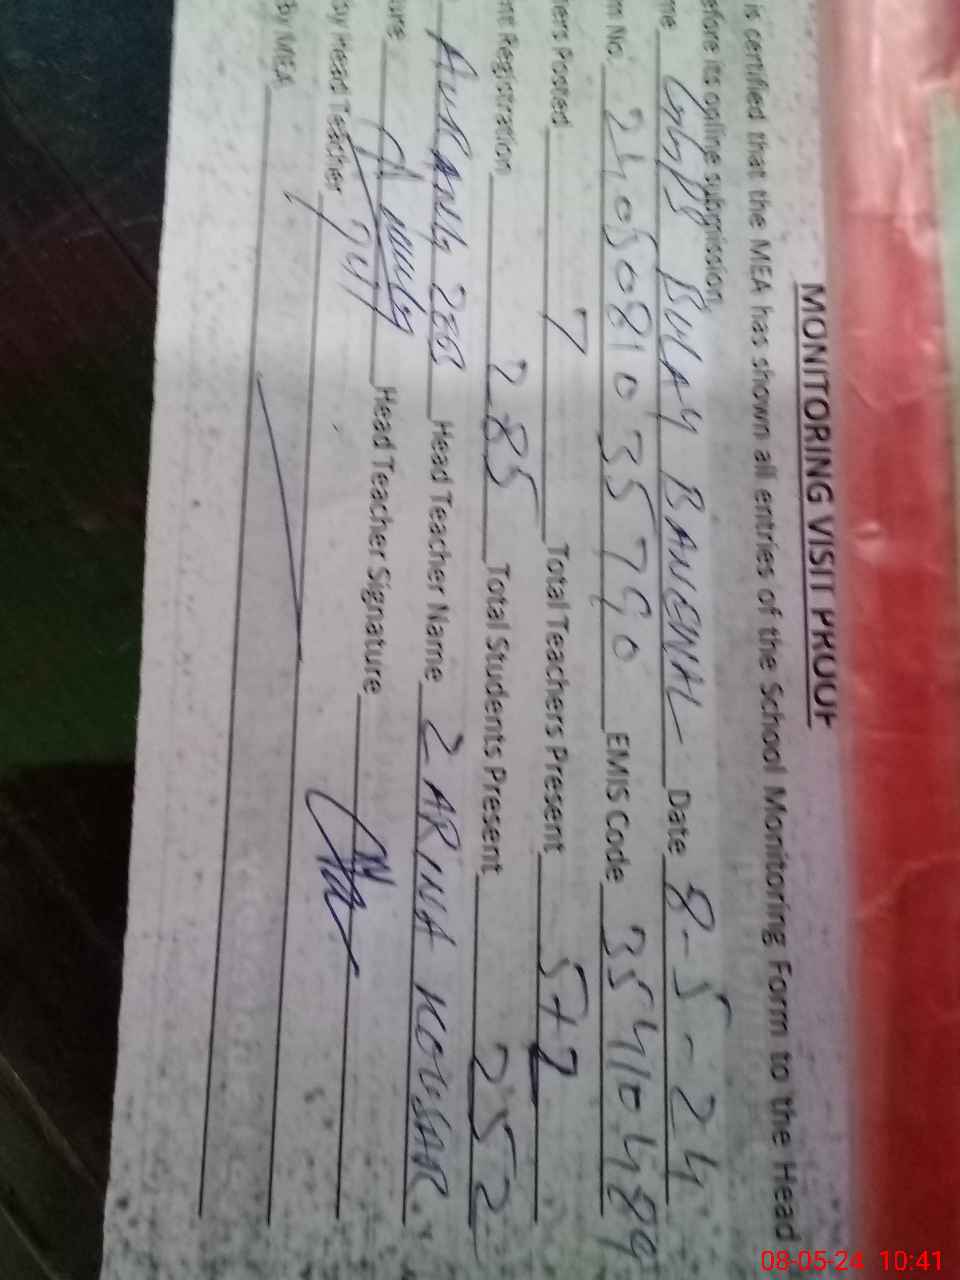 MONITORING VISIT PROOF
is certified that the MEA has shown all entries of the School Monitoring Form to the Head
efore its online submission.
me GGPS BULAY BANEWAL Date 8-5-24
m No. 2405081035790 EMIS Code 35410489
hers Posted 7 Total Teachers Present 5+2
nt Registration 285 Total Students Present 252
AURANG ZEB Head Teacher Name ZARINA KOUSAR
ure Head Teacher Signature
by Head Teacher
by MEA
08-05-24 10:41